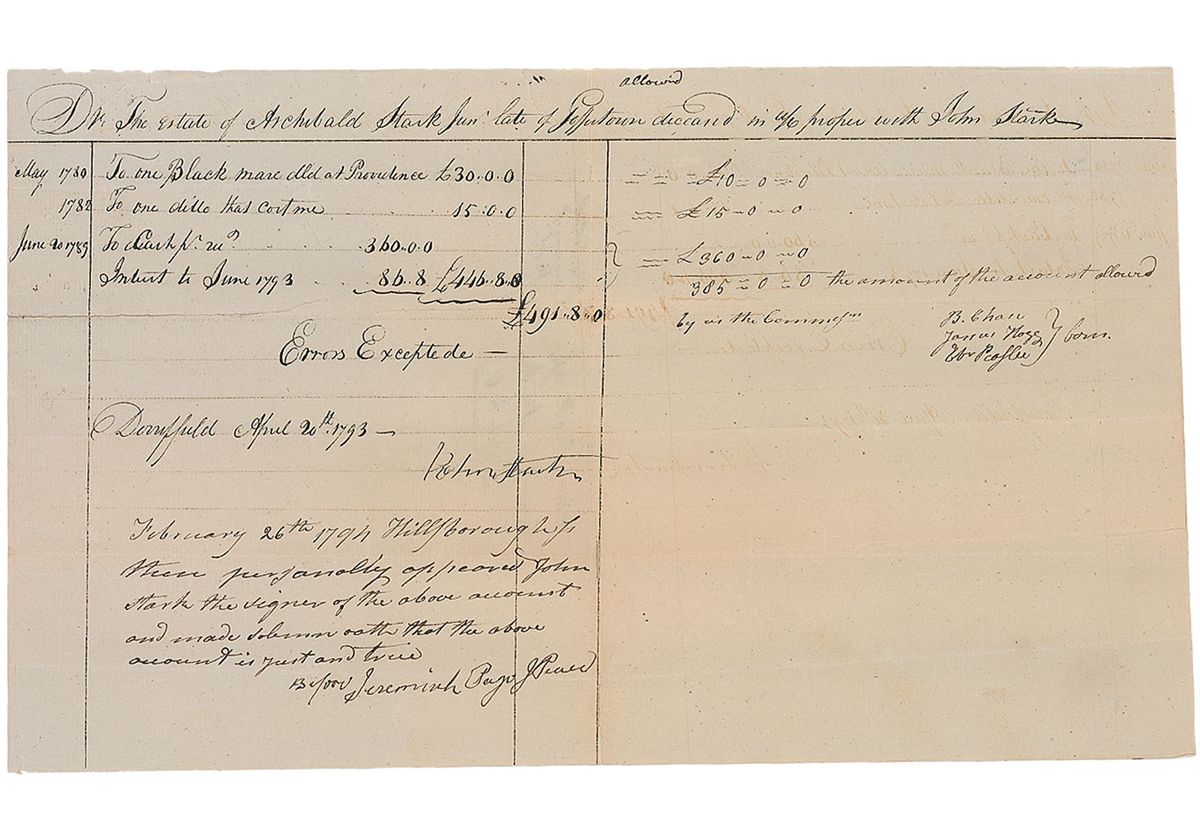 allowed
Dr. The Estate of Archibald Stark Junr. late of deceased in a/c proper with John Stark
May 1780 To one Black mare dld at Providence £30..0.0 £10=0=0
1782 To one ditto that cost me 15:0.0 £15=0=0
June 20 1789 To Cash pr. 360..0.0 £360=0=0
Intrest to June 1793 86..8 £446..8.0 385=0=0 the amount of the account allowed
£491..8..0 by us the Commesrs B. Chase
James Hogg
Ebr Peaslee } Com.
Errors Excepted
Derryfield April 20th. 1793
John Stark
February 26th 1794 Hillsborough Ss
then personally appeared John
Stark the signer of the above account
and made solemn oath that the above
account is just and true
Before Jeremiah Page J Peace